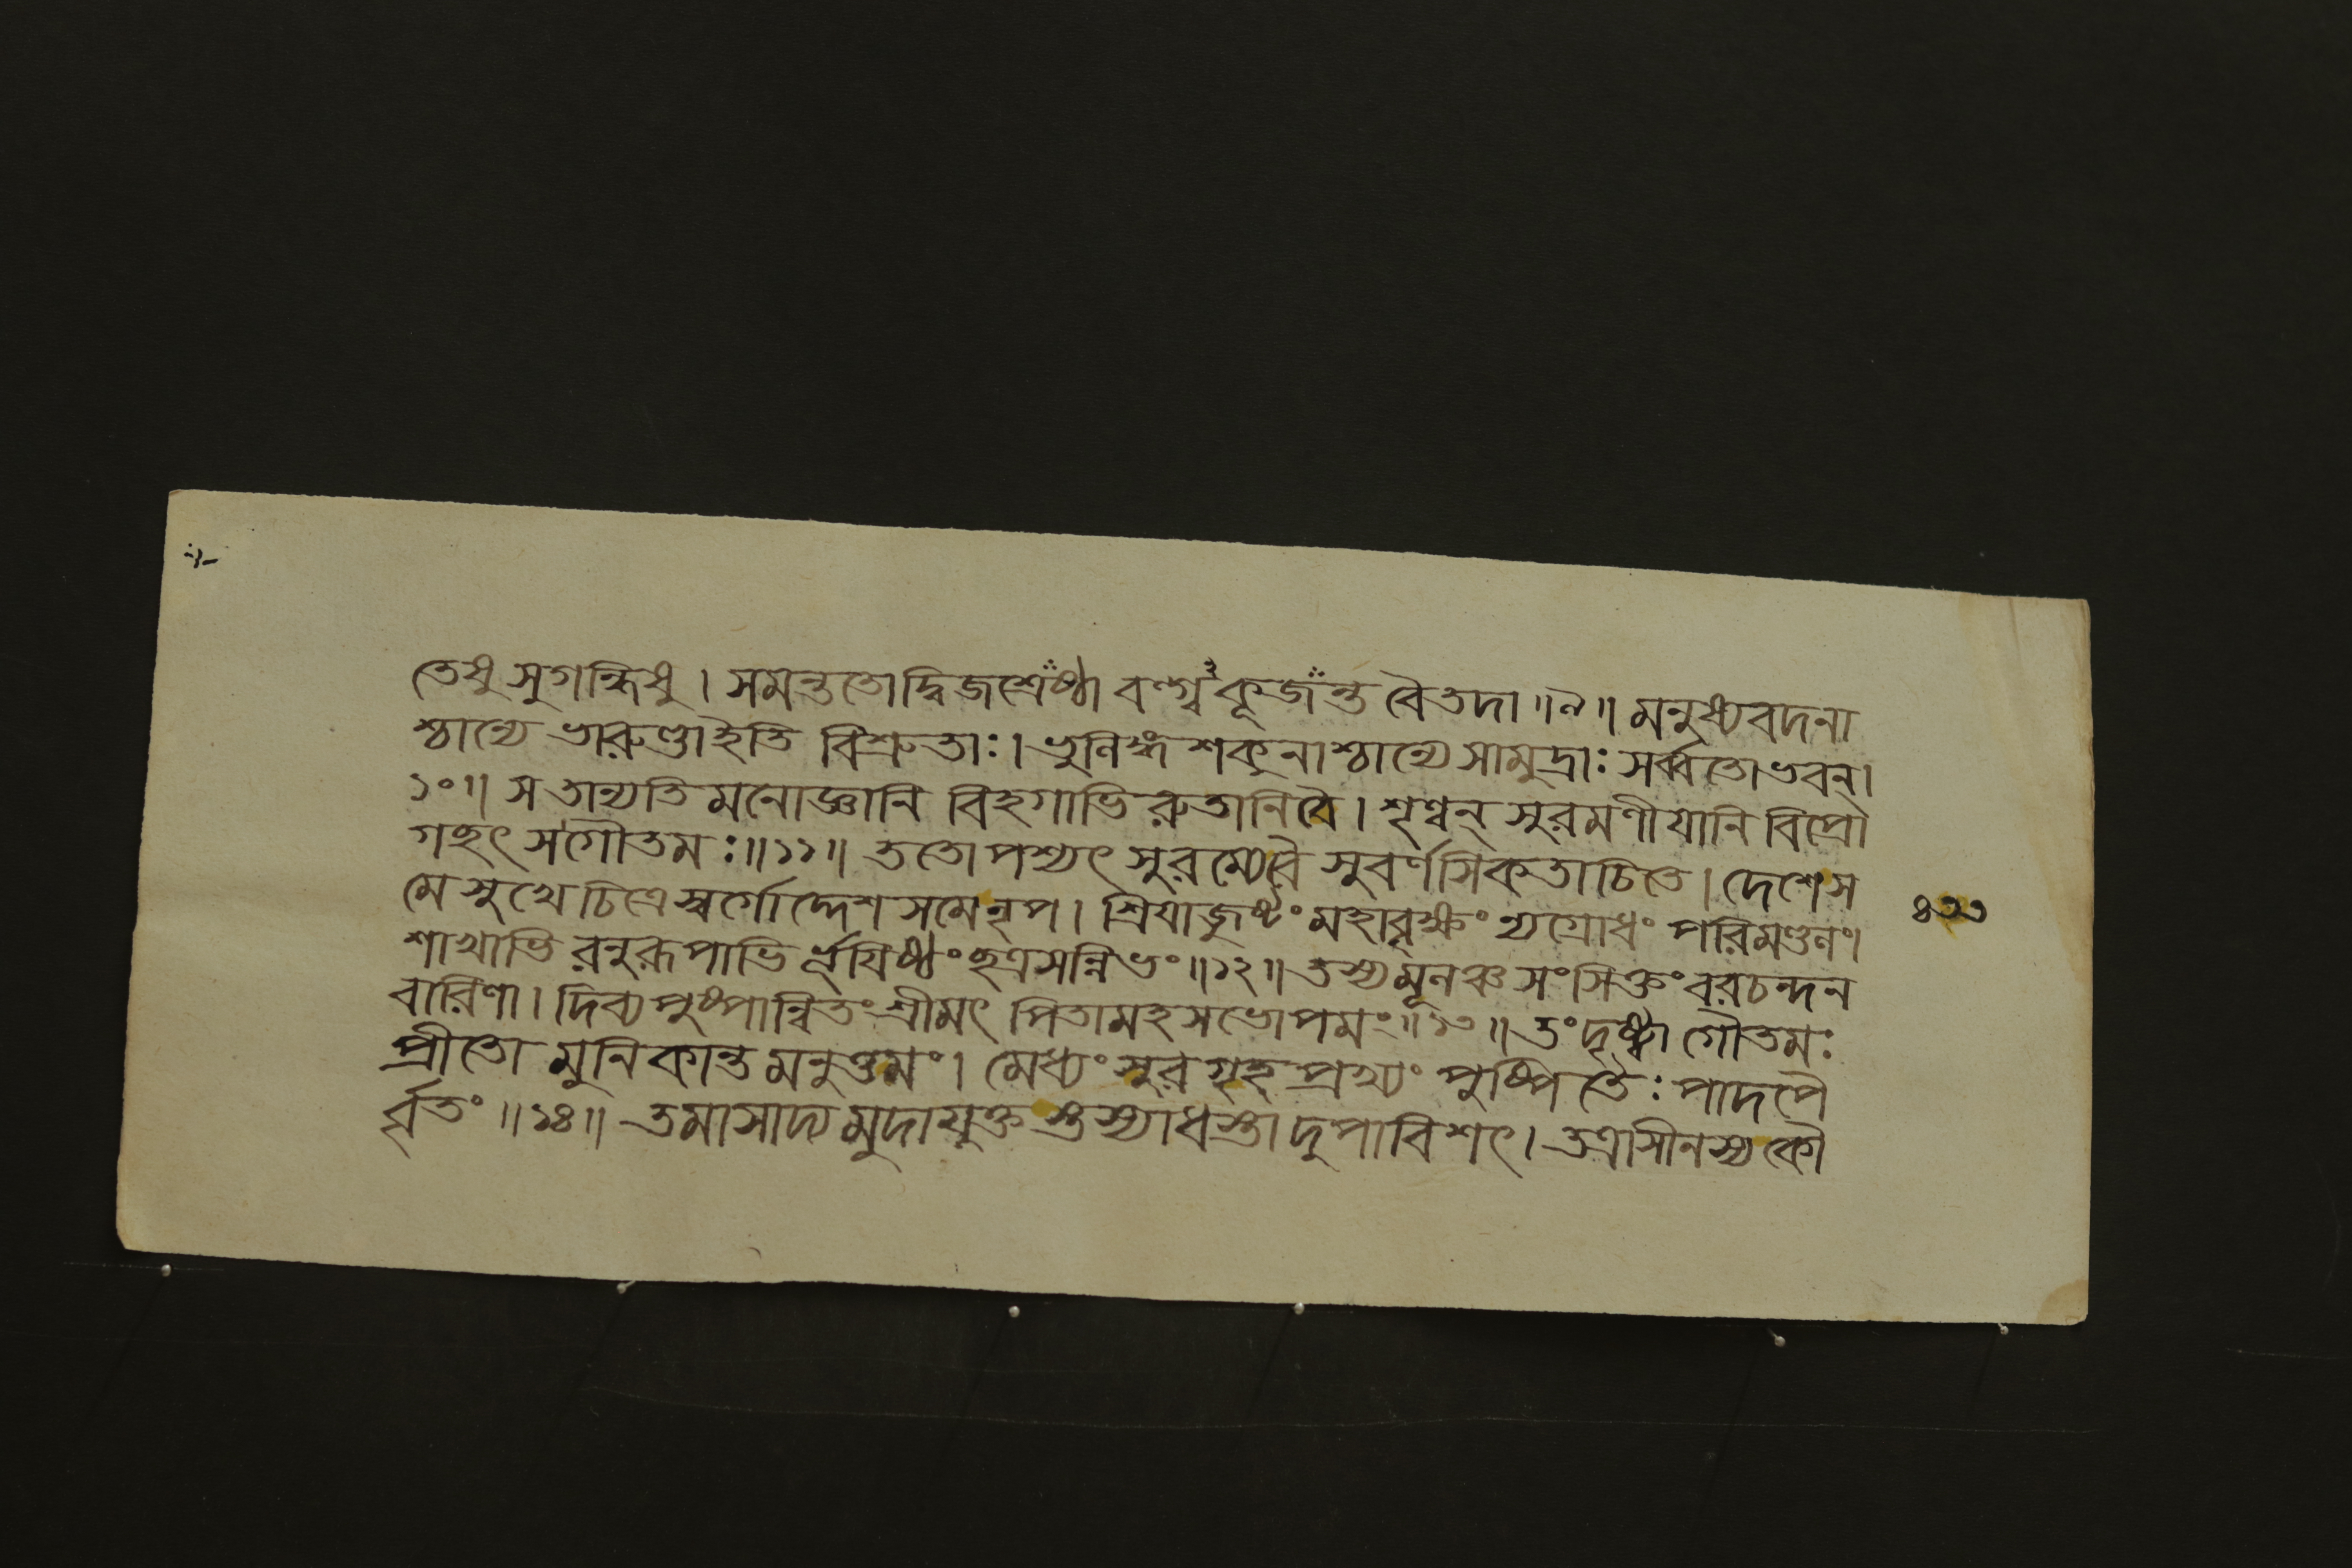 তেষু সুগন্ধিষু । সমন্ততো দ্বিজশ্রেষ্ঠা বল্গু কূজন্ত বৈ তদা ॥৯॥ মনুষ্যবদনা
শ্চান্যে ভারুণ্ডা ইতি বিশ্রুতাঃ । ভুলিঙ্গশকুনাশ্চান্যে সামুদ্রাঃ সর্ব্বতো ভবন্ ।
১০॥ স তান্যতি মনোজ্ঞানি বিহগাভি রুতানি বৈ । শৃণ্বন্ সুরমণীযানি বিপ্রো
গছৎ স গৌতমঃ ॥১১॥ ততো পশ্যৎ সুরম্যে বৈ সুবর্ণসিকতাচিতে । দেশে স
মে সুখে চিত্রে স্বর্গোদ্দেশসমে নৃপ । শ্রিযাজুষ্টং মহাবৃক্ষং ন্যগ্রোধং পরিমণ্ডলং।
শাখাভি রনুরূপাভি র্ভূযিষ্ঠং ছত্রসন্নিভং ॥১২॥ তস্য মূলঞ্চ সংসিক্তং বরচন্দন
বারিণা । দিব্যপুষ্পান্বিতং শ্রীমৎ পিতামহসভোপমং ॥১৩॥ তং দৃষ্ট্বা গৌতমঃ
প্রীতো মুনিকান্ত মনুত্তমং । মেধ্যং সুরগৃহপ্রখ্যং পুষ্পিতৈঃ পাদপৈ
র্বৃতং ॥১৪॥ তমাসাদ্য মুদাযুক্ত স্তস্যাধস্তা দুপাবিশৎ । তত্রাসীনস্য কৌ